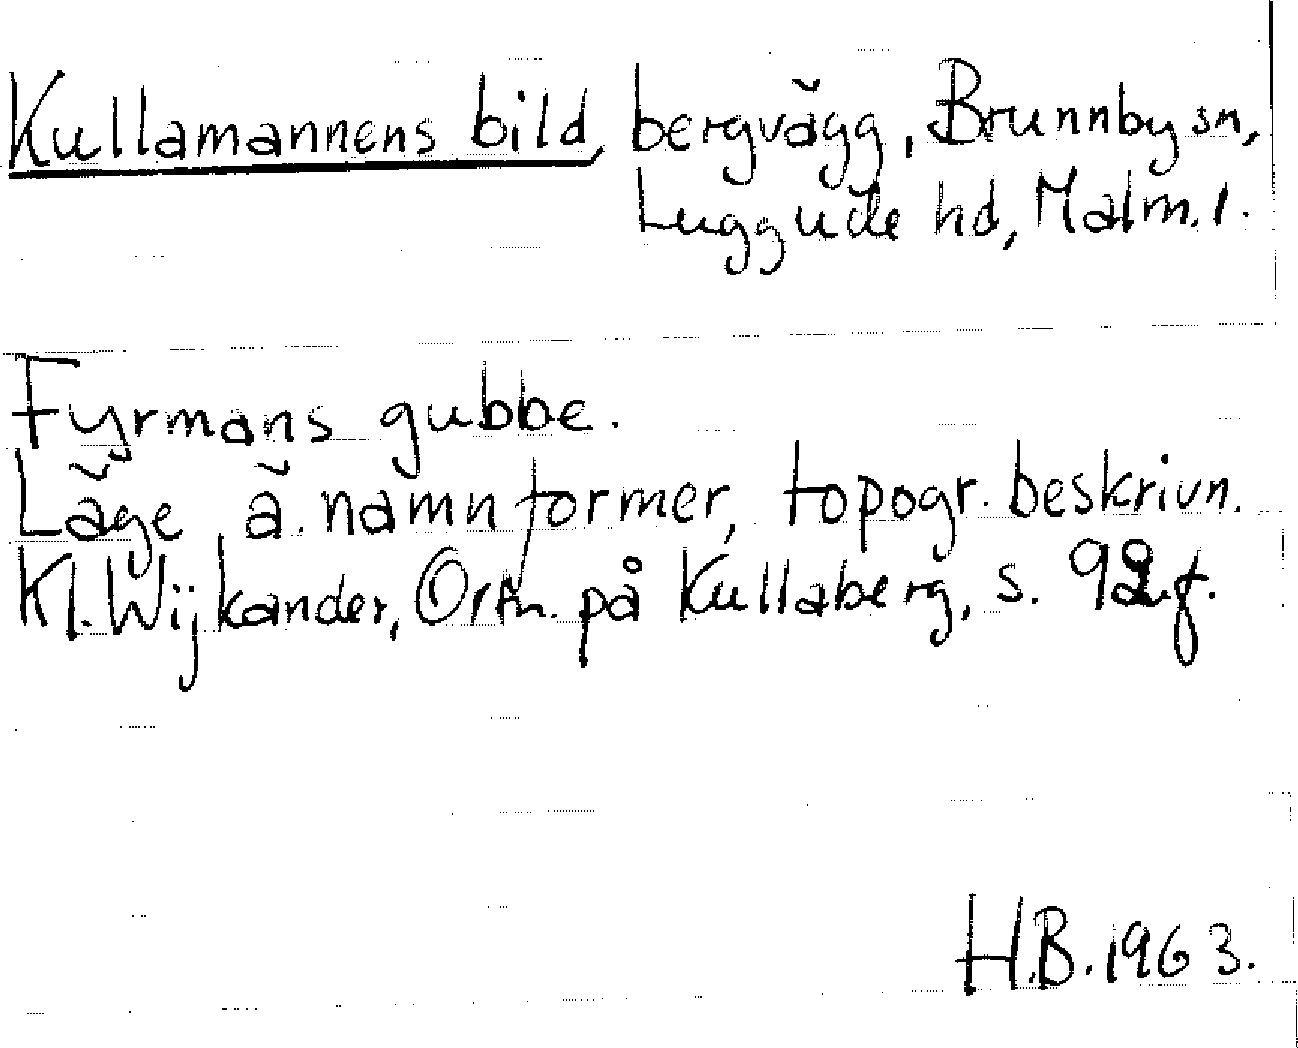 Kullamannens bild, bergvägg, Brunnby sn,
Luggude hd, Malm. l.
Fyrmans gubbe.
Läge, ä. namnformer, topogr. beskrivn.
Kl. Wijkander, Ortn. på Kullaberg, s. 92 f.
H.B. 1963.